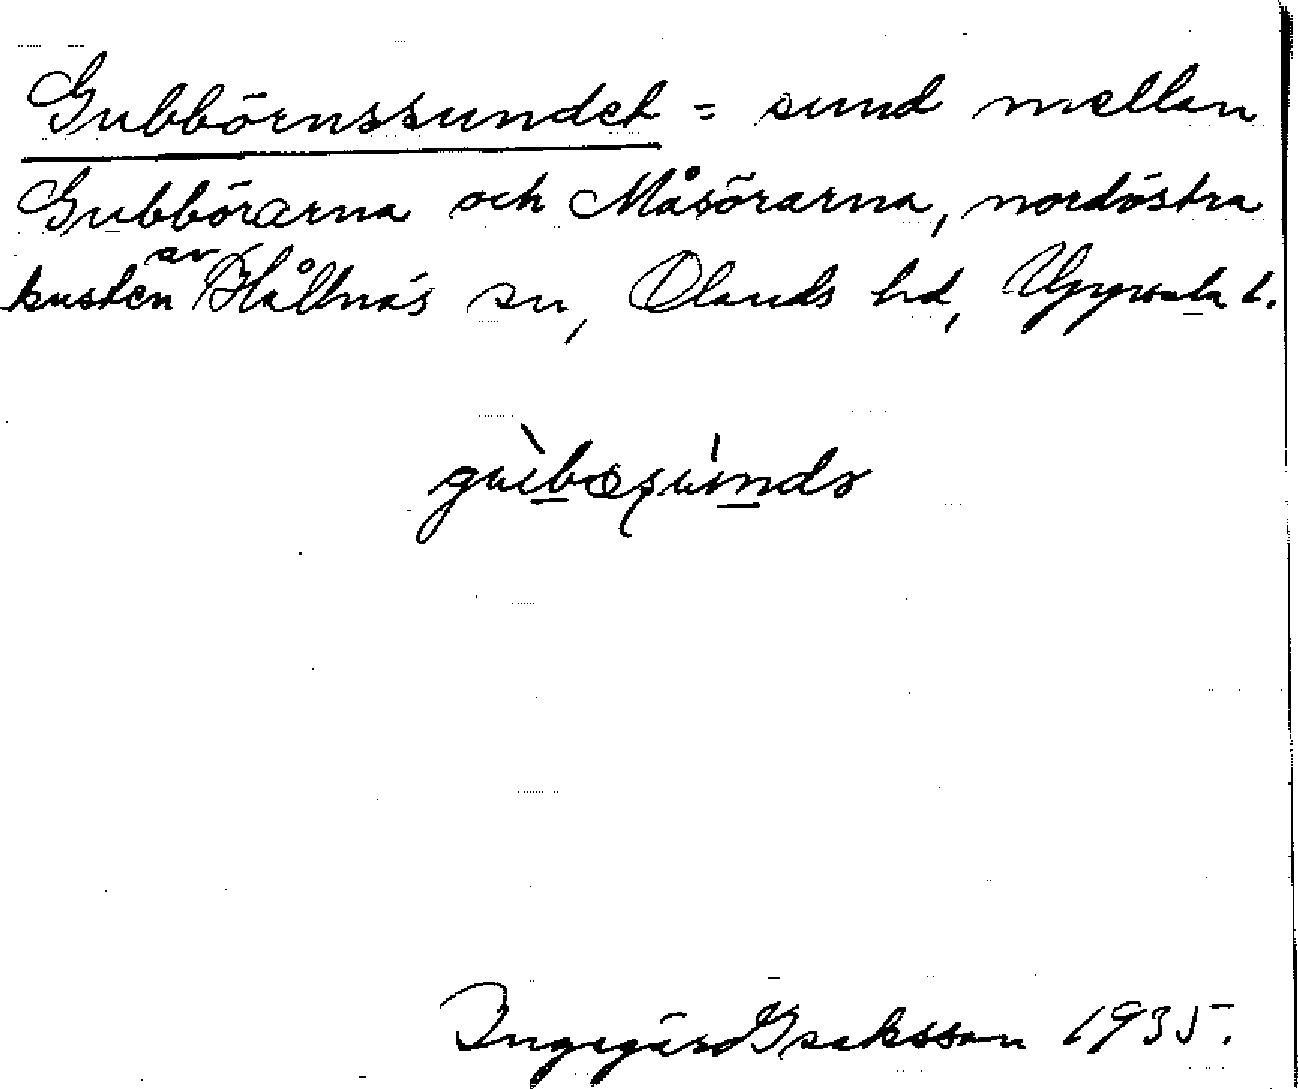 Gubbörnssundet = sund mellan
Gubbörarna och Måsörarna, nordöstra
kusten av Hållnäs sn, Olands hd, Uppsala l.
Ingegärd Isaksson 1935.